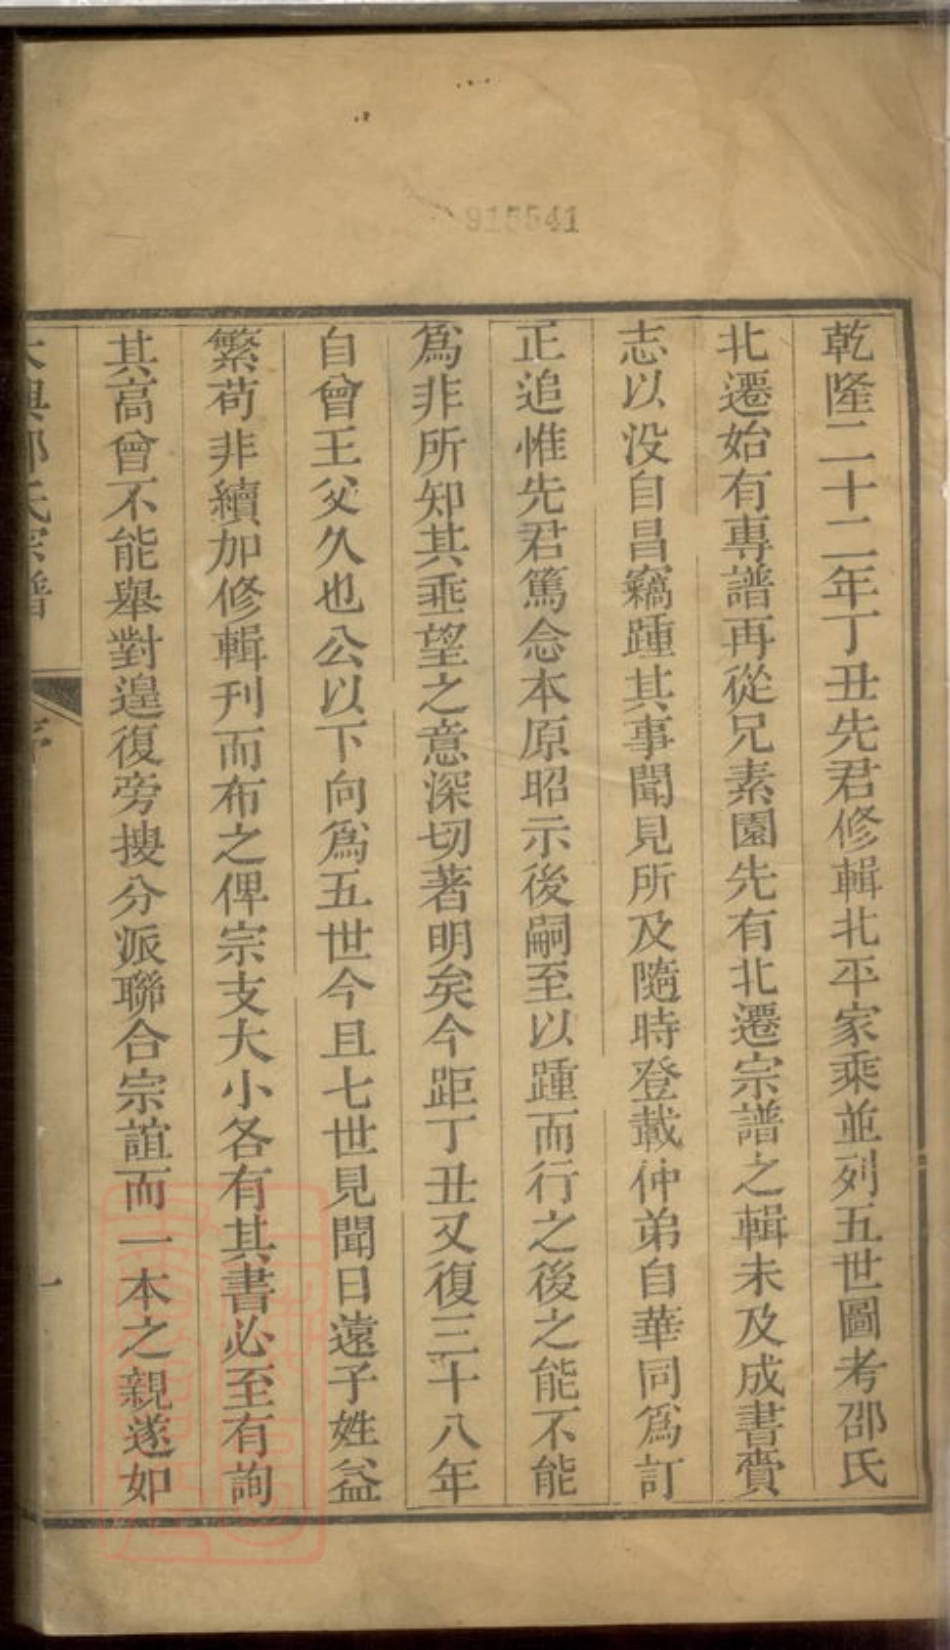 915541
乾隆二十二年丁丑先君修輯北平家乘並列五世圖考邵氏
北遷始有專譜再從兄素園先有北遷宗譜之輯未及成書賫
志以没自昌竊踵其事聞見所及隨時登載仲弟自華同爲訂
正追惟先君篤念本原昭示後嗣至以踵而行之後之能不能
爲非所知其乖望之意深切著明矣今距丁丑又復三十八年
自曾王父久也公以下向爲五世今且七世見聞日遠子姓益
繁苟非續加修輯刊而布之俾宗支大小各有其書必至有詢
其高曾不能舉對遑復旁搜分派聯合宗誼而一本之親遂如
大興邵氏宗譜 序 一